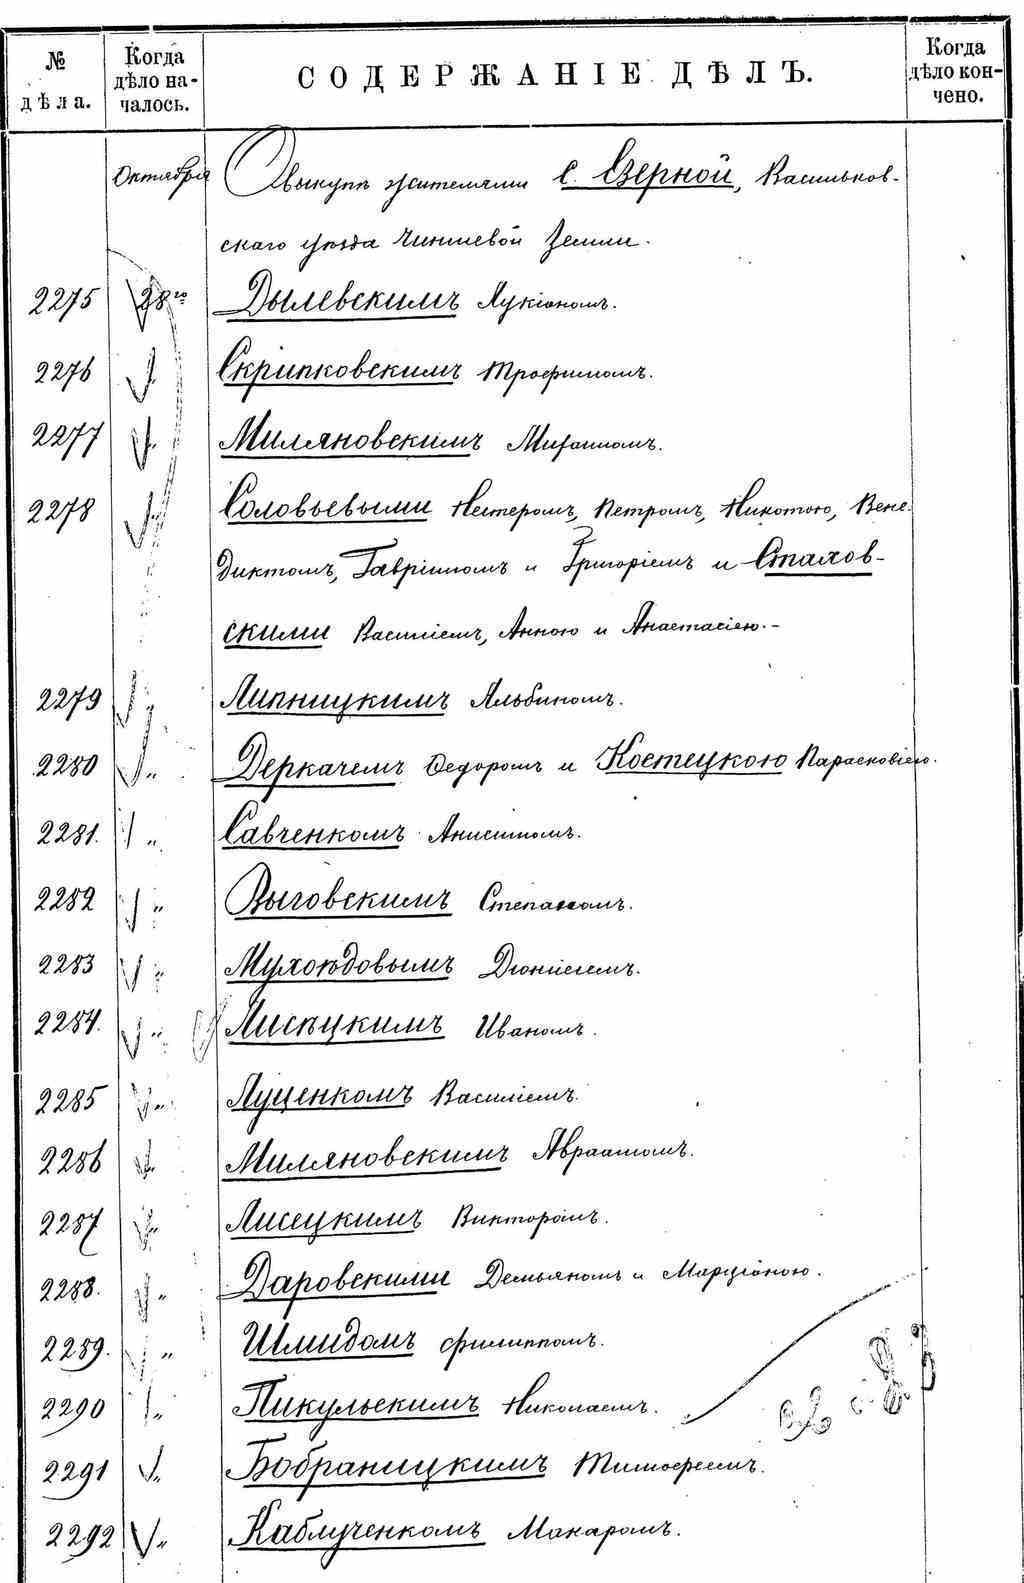 № дѣла.
Когда дѣло на-
чалось.
СОДЕРЖАНІЕ ДѢЛЪ.
Когда дѣло кон-
чено.
Октября О выкупѣ жителями с. Озерной, Васильков-
скаго уѣзда Чиншевой Земли.
2275 28го Дылевскимъ Лукіаномъ.
2276 " Скрипковскимъ Трофимомъ.
2277 " Миляновскимъ Михаиломъ.
2278 " Соловьевыми Нестеромъ, Петромъ, Никитою, Вене-
диктомъ, Гавріиломъ и Григоріемъ и Стахов-
скими Василіемъ, Анною и Анастасіею.-
2279 " Липницкимъ Альбиномъ.
2280 " Деркачемъ Федоромъ и Костецкою Парасковіею.
2281. " Савченкомъ Анисимомъ.
2282 " Выговскимъ Степаномъ.
2283 " Мухоѣдовымъ Діонисіемъ.
2284. " Лисѣцкимъ Иваномъ.
2285 " Луценкомъ Василіемъ.
2286 " Миляновскимъ Авраамомъ.
2287 " Лисецкимъ Викторомъ.
2288. " Даровскими Демьяномъ и Марціоною.
2289. " Шмидомъ Филиппомъ.
2290 " Пикульскимъ Николаемъ.
2291 " Бобраницкимъ Тимофеемъ.
2292 " Каблученкомъ Макаромъ.